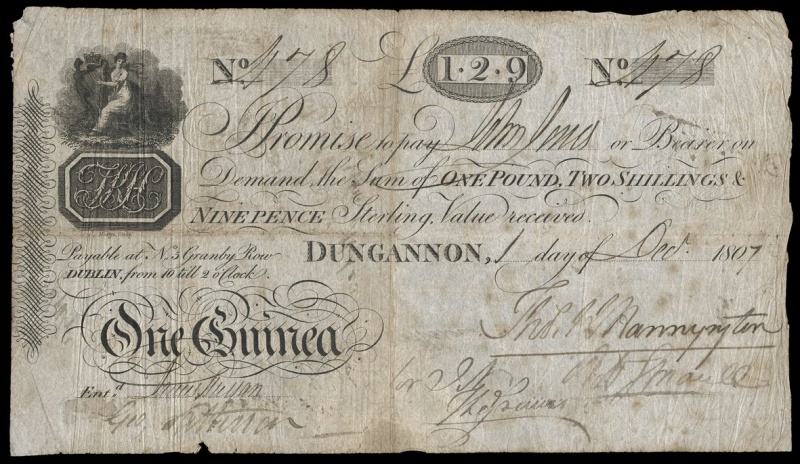 No 478 £1·2·9 No 478
I Promise to pay John Jones or Bearer on
Demand, the Sum of ONE POUND, TWO SHILLINGS &
NINE PENCE Sterling. Value received.
Payable at No. 5 Granby Row
DUBLIN, from 10 till 2 o'Clock.
DUNGANNON, 1 day of Decr. 1807
One Guinea
Thos. Hannyngton
Ent.d
for
Geo